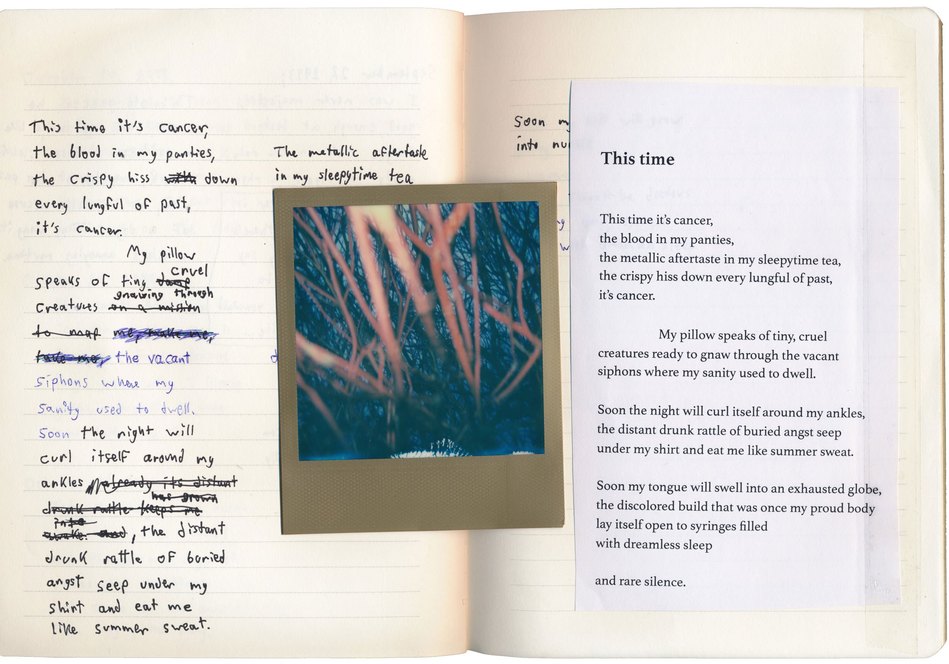 This time it's cancer,
the blood in my panties,
the crispy hiss down
every lungful of past,
it's cancer.
My pillow
cruel
speaks of tiny
gnawing through
creatures on a mission
to map me, make me,
the vacant
siphons where my
sanity used to dwell.
Soon the night will
curl itself around my
ankles already its distant
has grown
drunk rattle keeps me
into
awake and, the distant
drunk rattle of buried
angst seep under my
shirt and eat me
like summer sweat.
The metallic aftertaste
in my sleepytime tea
Soon my
into
This time
This time it's cancer,
the blood in my panties,
the metallic aftertaste in my sleepytime tea,
the crispy hiss down every lungful of past,
it's cancer.
My pillow speaks of tiny, cruel
creatures ready to gnaw through the vacant
siphons where my sanity used to dwell.
Soon the night will curl itself around my ankles,
the distant drunk rattle of buried angst seep
under my shirt and eat me like summer sweat.
Soon my tongue will swell into an exhausted globe,
the discolored build that was once my proud body
lay itself open to syringes filled
with dreamless sleep
and rare silence.